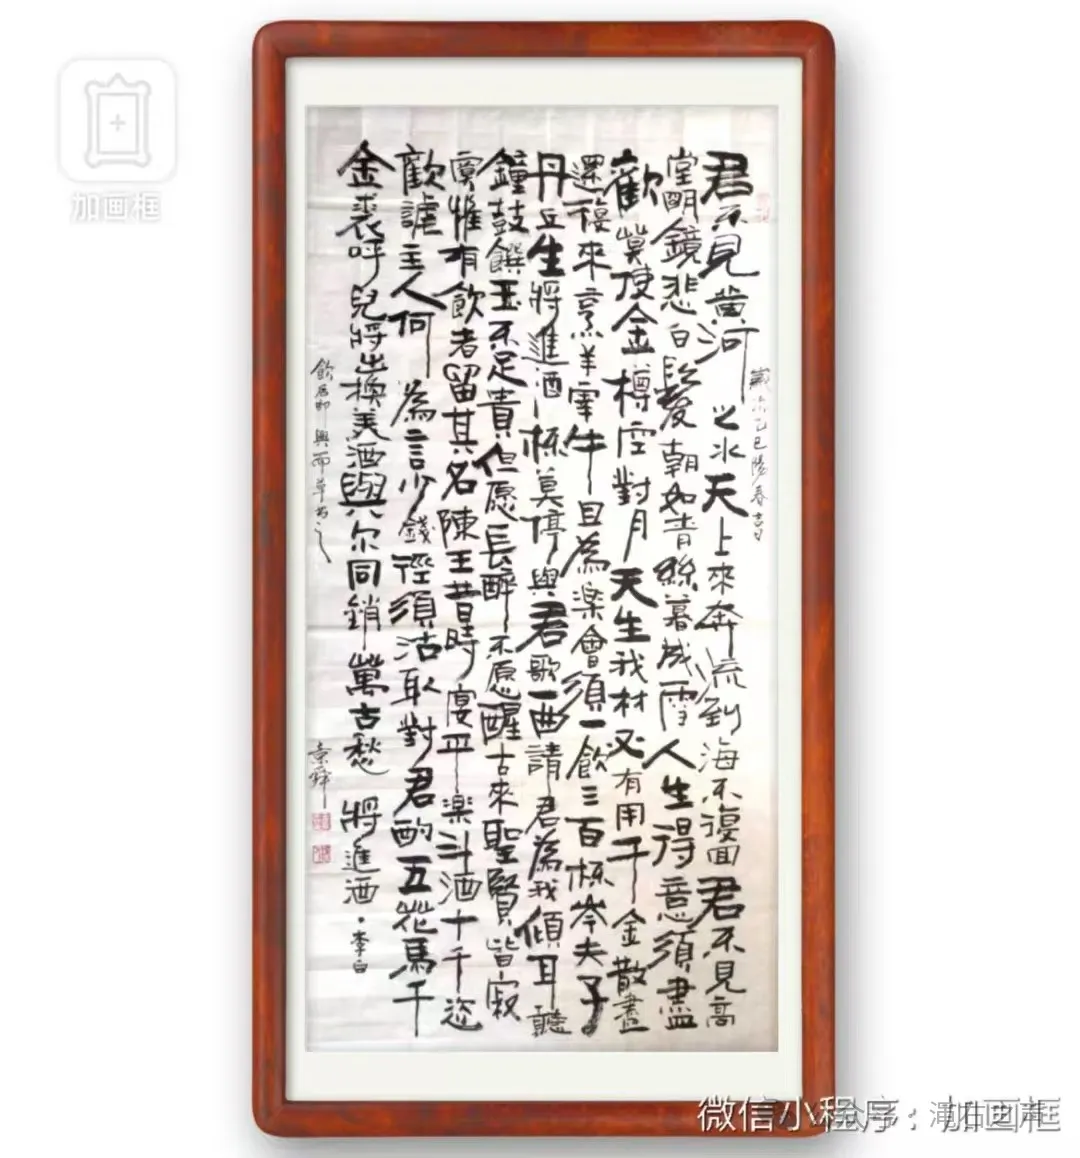 加画框
歲次乙巳陽春書
君不見黄河之水天上來奔流到海不復回君不見高
堂明鏡悲白髮朝如青絲暮成雪人生得意須盡
歡莫使金樽空對月天生我材必有用千金散盡
還復來烹羊宰牛且為楽會須一飲三百杯岑夫子
丹丘生將進酒杯莫停與君歌一曲請君為我傾耳聽
鐘鼓饌玉不足貴但愿長醉不愿醒古來聖賢皆寂
寞惟有飲者留其名陳王昔時宴平楽斗酒十千恣
歡謔主人何為言少錢徑須沽取對君酌五花馬千
金裘呼兒將出換美酒與尔同銷萬古愁 將進酒·李白
飲后即興而草書之 景舜
微信小程序：加画框